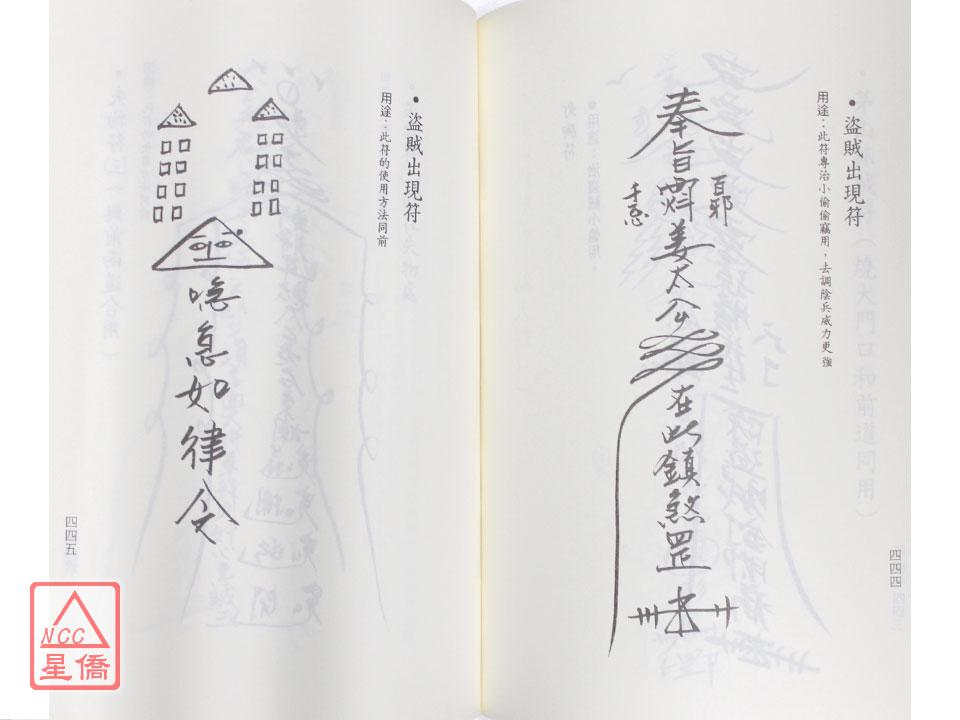 • 盜賊出現符
用途：此符專治小偷偷竊用，去調陰兵威力更強
奉旨
姜太公
在此鎮煞罡
四四四
• 盜賊出現符
用途：此符的使用方法同前
唵急如律令
四四五
NCC
星僑